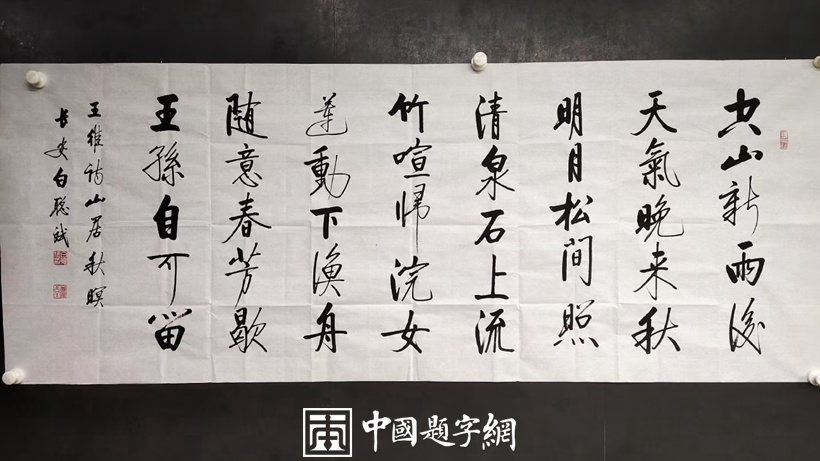 空山新雨後
天氣晚来秋
明月松間照
清泉石上流
竹喧归浣女
莲動下渔舟
随意春芳歇
王孫自可留
王維詩山居秋暝
长安白聪
中國題字網